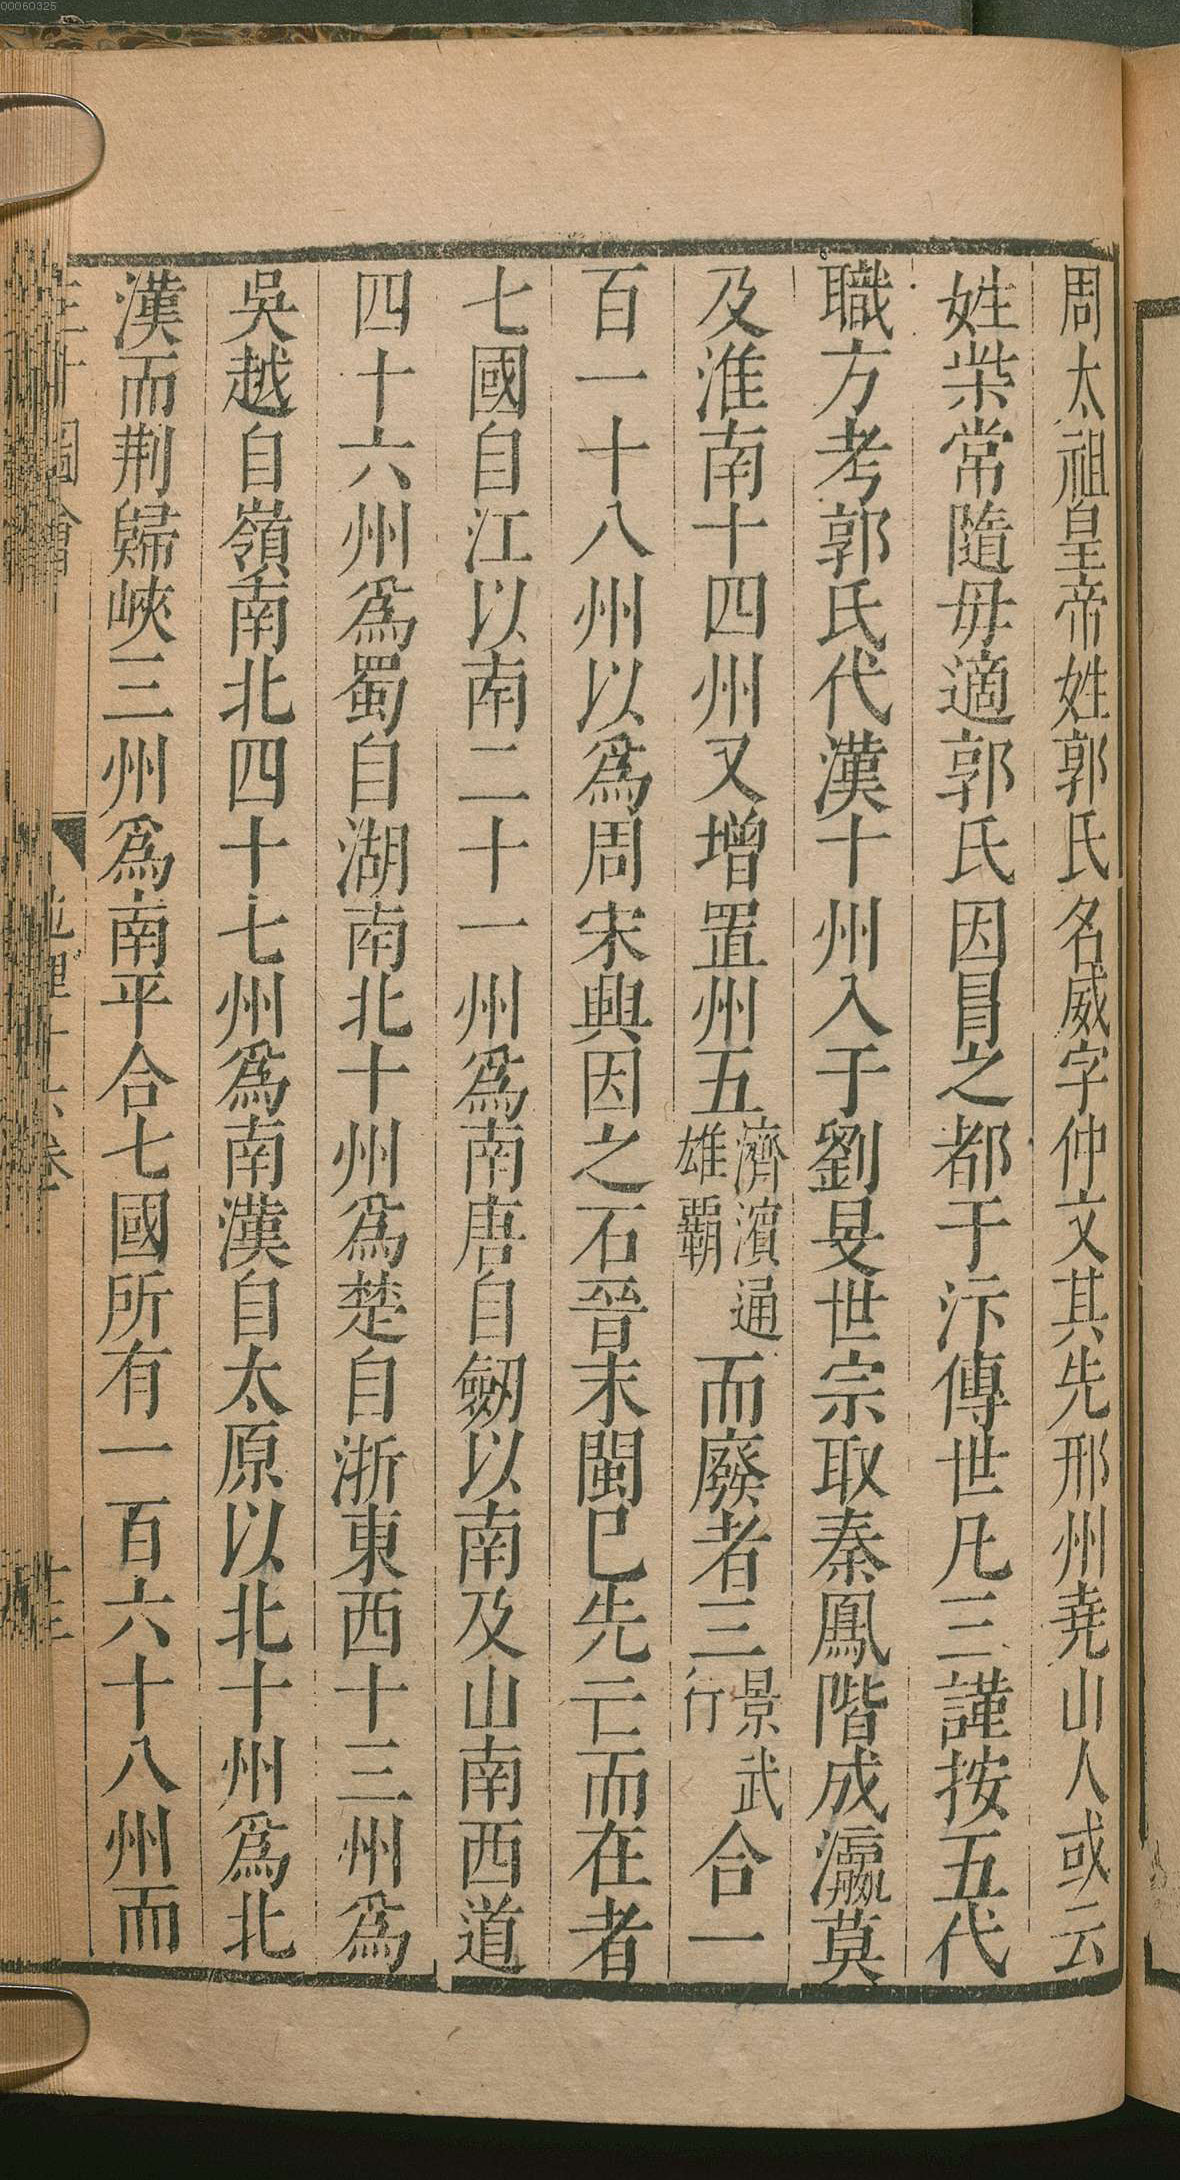 00060325
周太祖皇帝姓郭氏名威字仲文其先邢州堯山人或云
姓柴常隨毋適郭氏因冐之都于汴傳世凡三謹按五代
職方考郭氏代漢十州入于劉旻世宗取秦鳳階成瀛莫
及淮南十四州又增置州五濟濱通雄覇而廢者三景武行合一
百一十八州以爲周宋興因之石晉末閩已先亡而在者
七國自江以南二十一州爲南唐自劒以南及山南西道
四十六州爲蜀自湖南北十州爲楚自浙東西十三州爲
吳越自嶺南北四十七州爲南漢自太原以北十州爲北
漢而荆歸峽三州爲南平合七國所有一百六十八州而
三才圖會 地理十六卷